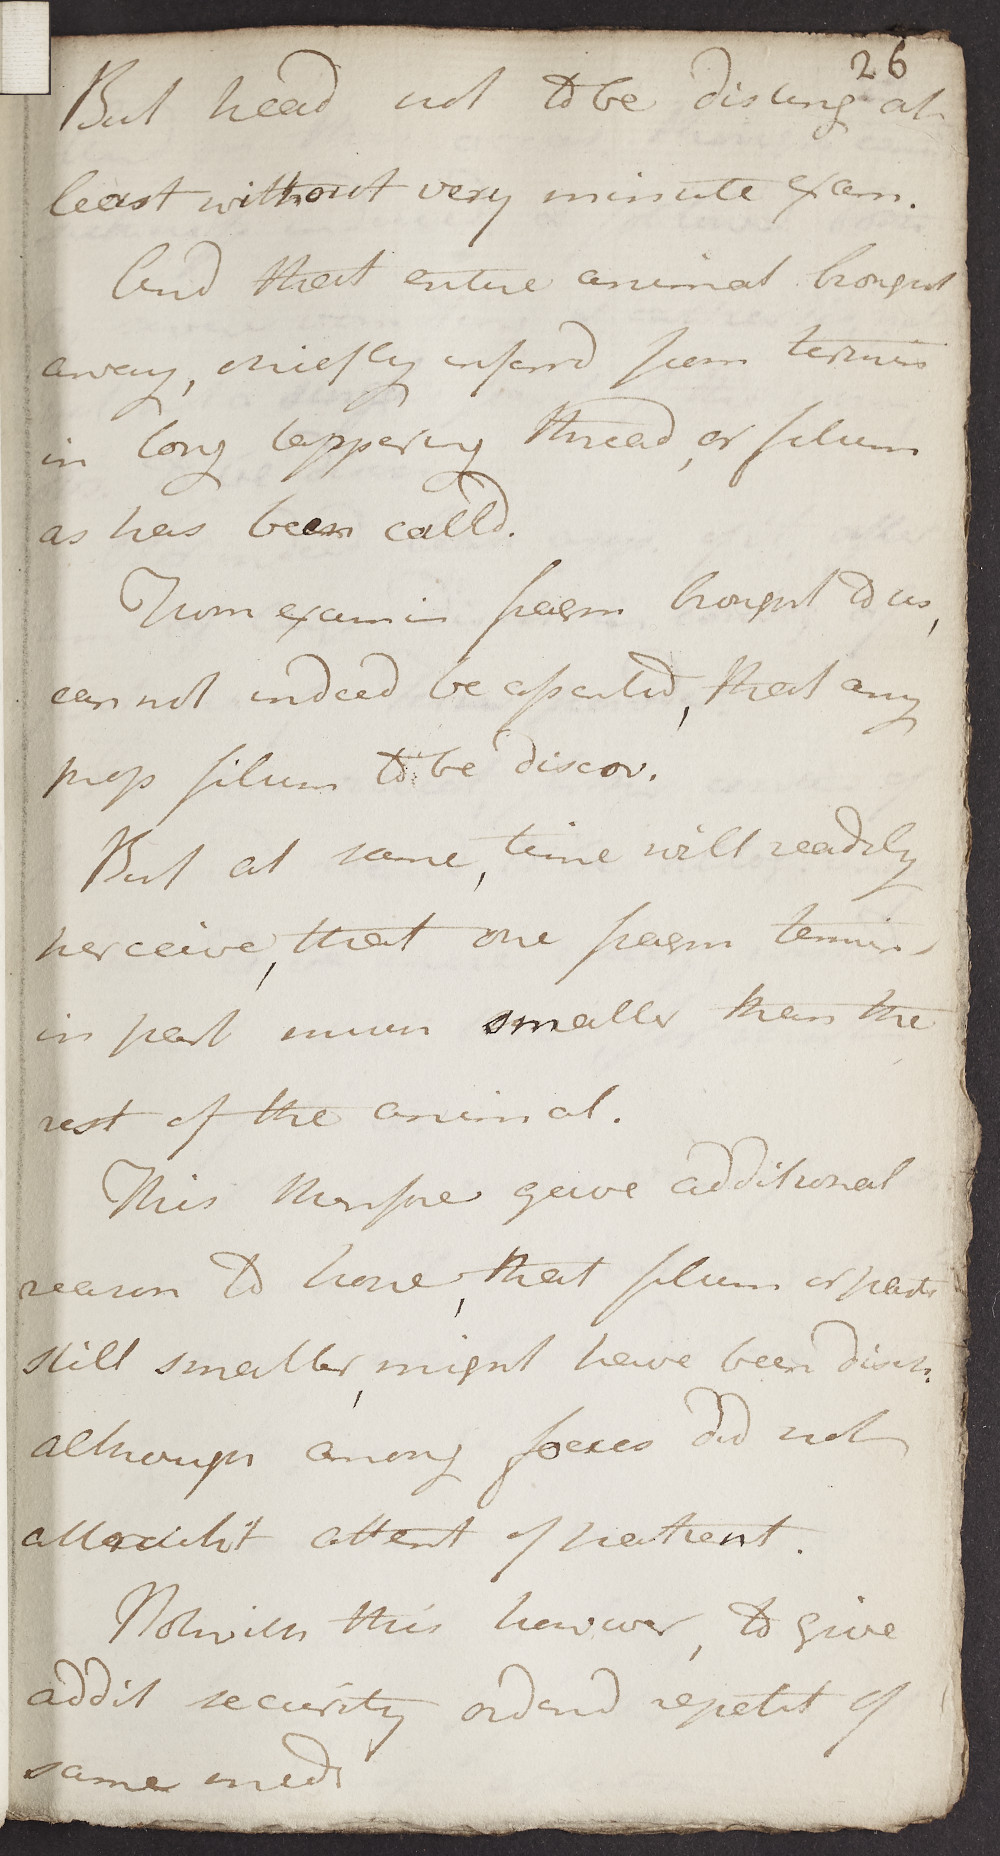 26
But head not to be disting at
least without very minute exam.
And that entire animal brought
away, chiefly inferrd from termin
in long tappering thread, or filum
as has been calld.
From examin fragm brought to us,
can not indeed be asserted, that any
prop filum to be discov.
But at same, time will readily
perceive, that one fragm termin
in part much smaller than the
rest of the animal.
This therefore gave additional
reason to hope, that filum or parts
still smaller, might have been disch.
although among foeces did not
attract attent of patient.
Notwith this however, to give
addit security orderd repetit of
same med